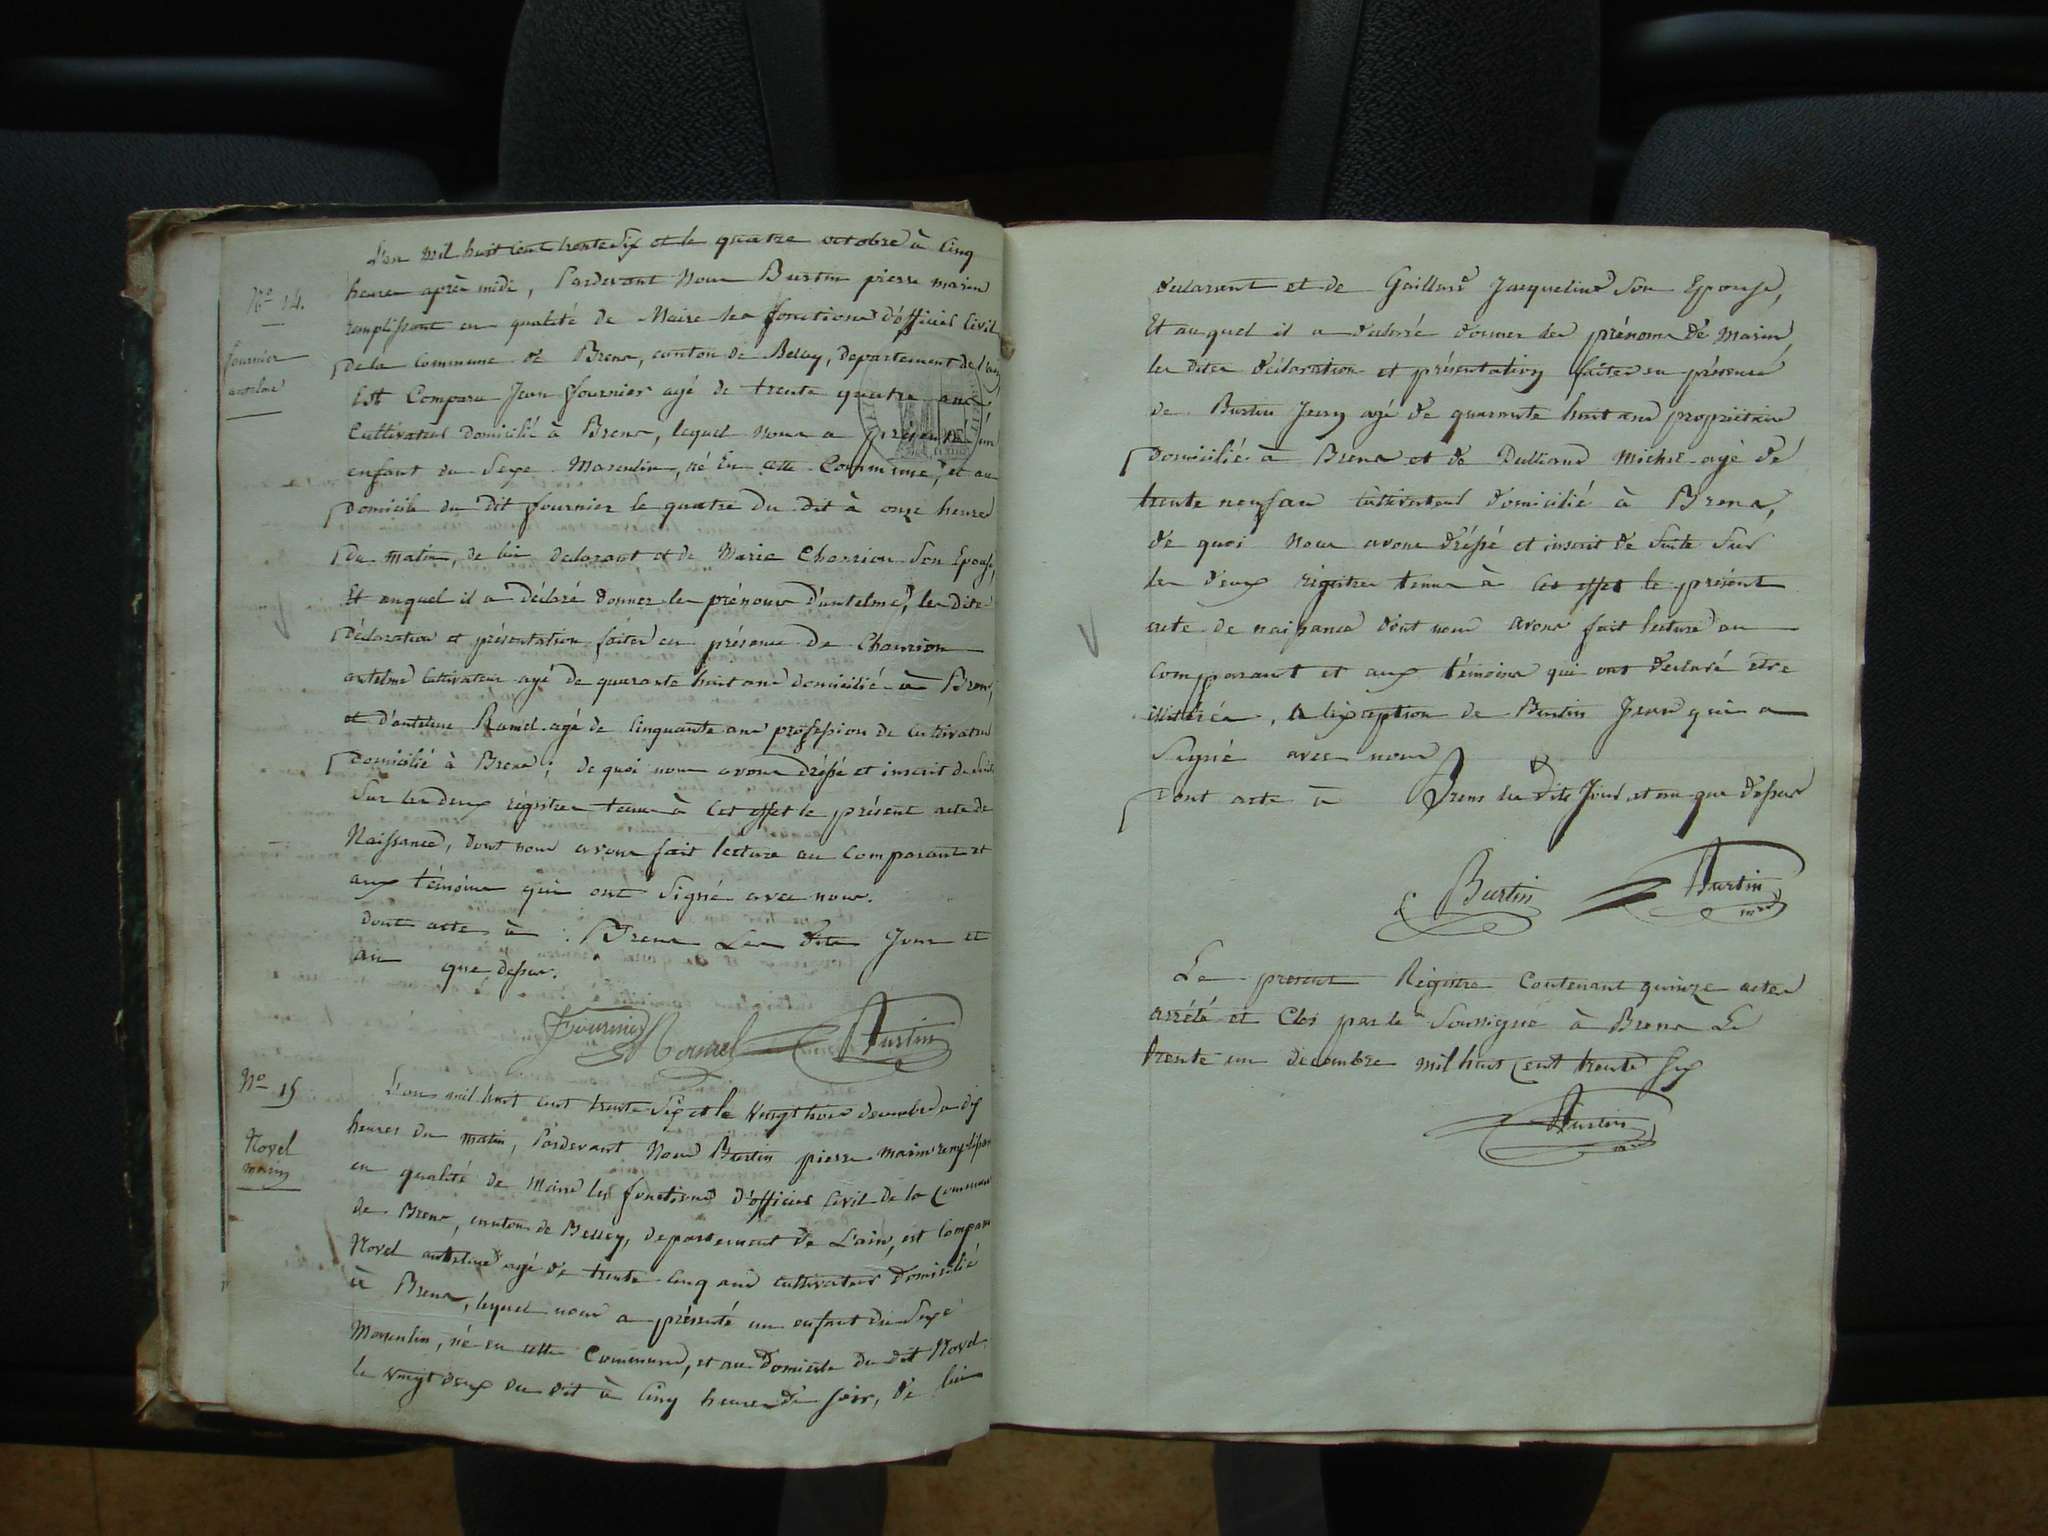 L'an mil huit cent trente six et le quatre octobre à cinq
N° 14.
heures après midi, Pardevant Nous Burtin pierre marin
remplissant en qualité de Maire les fonctions d'officier Civil
fournier
antelme
de la Commune de Brens, canton de Belley, departement de l'ain
Est Comparu Jean fournier agé de trente quatre ans
Cultivateur Domicilié à Brens, lequel nous a présenté un
enfant du Sexe Masculin, né En cette Commune, et au
Domicile du dit fournier le quatre du dit à onze heures
du matin, de lui declarant et de Marie Charrion Son Epouse,
Et auquel il a déclaré donner les prénoms d'antelme, les dites
Déclaration et présentation faites en présence de Charrion
antelme Cultivateur agé de quarante huit ans domicilié à Brens,
et d'antelme Ramel agé de cinquante ans profession de cultivateur
Domicilié à Brens; de quoi nous avons dréssé et inscrit de Suite
Sur les deux régistres tenus à cet effet le présent acte de
Naissance, dont nous avons fait lecture au Comparant et
aux témoins qui ont Signé avec nous.
dont acte à Brens Les dits Jour et
an que dessus.
Fournier Burtin
N° 15
L'an mil huit cent trente Six et le Vingt trois decembre à dix
Novel
marin
heures du matin, Pardevant Nous Burtin pierre marin remplissant
en qualité de Maire les fonctions d'officier Civil de la Commune
de Brens, canton de Belley, departement de L'ain, est Comparu
Novel antelme agé de trente cinq ans cultivateur Domicilié
à Brens, lequel nous a présenté un enfant du Sexe
Masculin, né en cette Commune, et au Domicile du dit Novel
le vingt deux du dit à Cinq heures du soir, de lui
declarant et de Gaillard Jacqueline Son Epouse,
Et auquel il a déclaré donner les prénoms de Marin,
les dites déclaration et présentation faites en présence
de Burtin Jean agé de quarante huit ans propriétaire
Domicilié à Brens et de Dulliand Michel agé de
trente neuf an Cultivateur domicilié à Brens,
de quoi nous avons dréssé et inscrit de Suite Sur
les deux régistres tenus à cet effet le présent
acte de naissance dont nous avons fait lecture au
Comparant et aux témoins qui ont declaré être
illitérés, à l'exception de Burtin Jean qui a
Signé avec nous
Dont acte à Brens les dits Jour et an que dessus
Burtin Burtin
Le present Régistre Contenant quinze actes
arrété et Clos par le Soussigné à Brens Le
trente un decembre mil huit Cent trente Six
Burtin